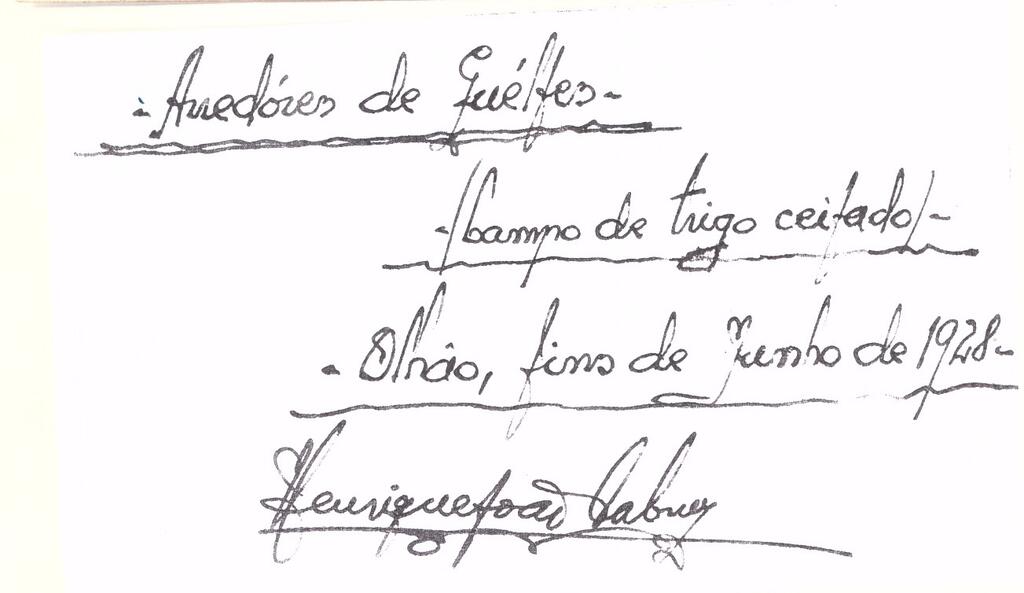 - Arredóres de Quélfes -
- (Campo de trigo ceifado) -
- Olhão, fins de Junho de 1928 -
Henrique João